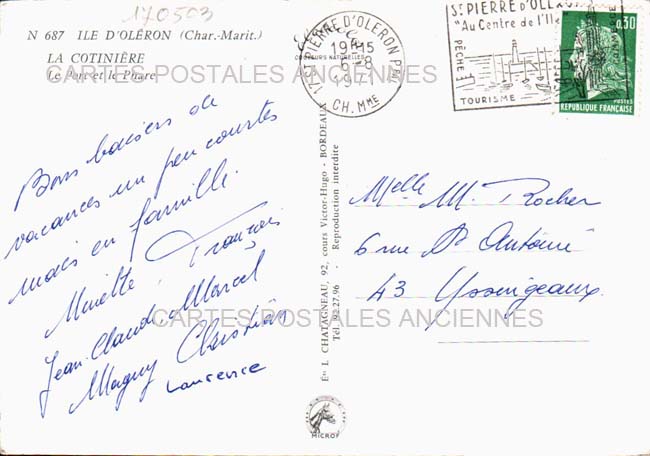 170503
N 687 ILE D'OLÉRON (Char.-Marit.)
LA COTINIÈRE
Le Port et le Phare
CARTES POSTALES ANCIENNES
17 ST PIERRE D'OLERON PPAL
19H15
6-8
1971
CH. MME
COULEURS NATURELLES
ST PIERRE D'OLERON
"Au Centre de l'Ile"
PÊCHE
TOURISME
0,30
POSTES
REPUBLIQUE FRANÇAISE
Bons baisers de
vacances un peu courtes
mais en famille.
Minette François
Jean-Claude Marcel
Maguy Christian
Laurence
Melle M. Rocher
6 rue St Antoine
43 Yssingeaux
Éts L. CHATAGNEAU, 92, cours Victor-Hugo - BORDEAUX
Tél. 92-27-96 - Reproduction interdite
CARTES POSTALES ANCIENNES
MICROF